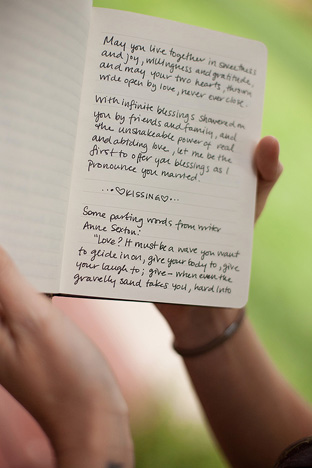 May you live together in sweetness
and joy, willingness and gratitude,
and may your two hearts, thrown
wide open by love, never ever close.
With infinite blessings showered on
you by friends and family, and
the unshakeable power of real
and abiding love, let me be the
first to offer you blessings as I
pronounce you married.
...♡KISSING♡...
Some parting words from writer
Anne Sexton:
"Love? It must be a wave you want
to glide in on, give your body to, give
your laugh to; give - when even the
gravelly sand takes you, hard into